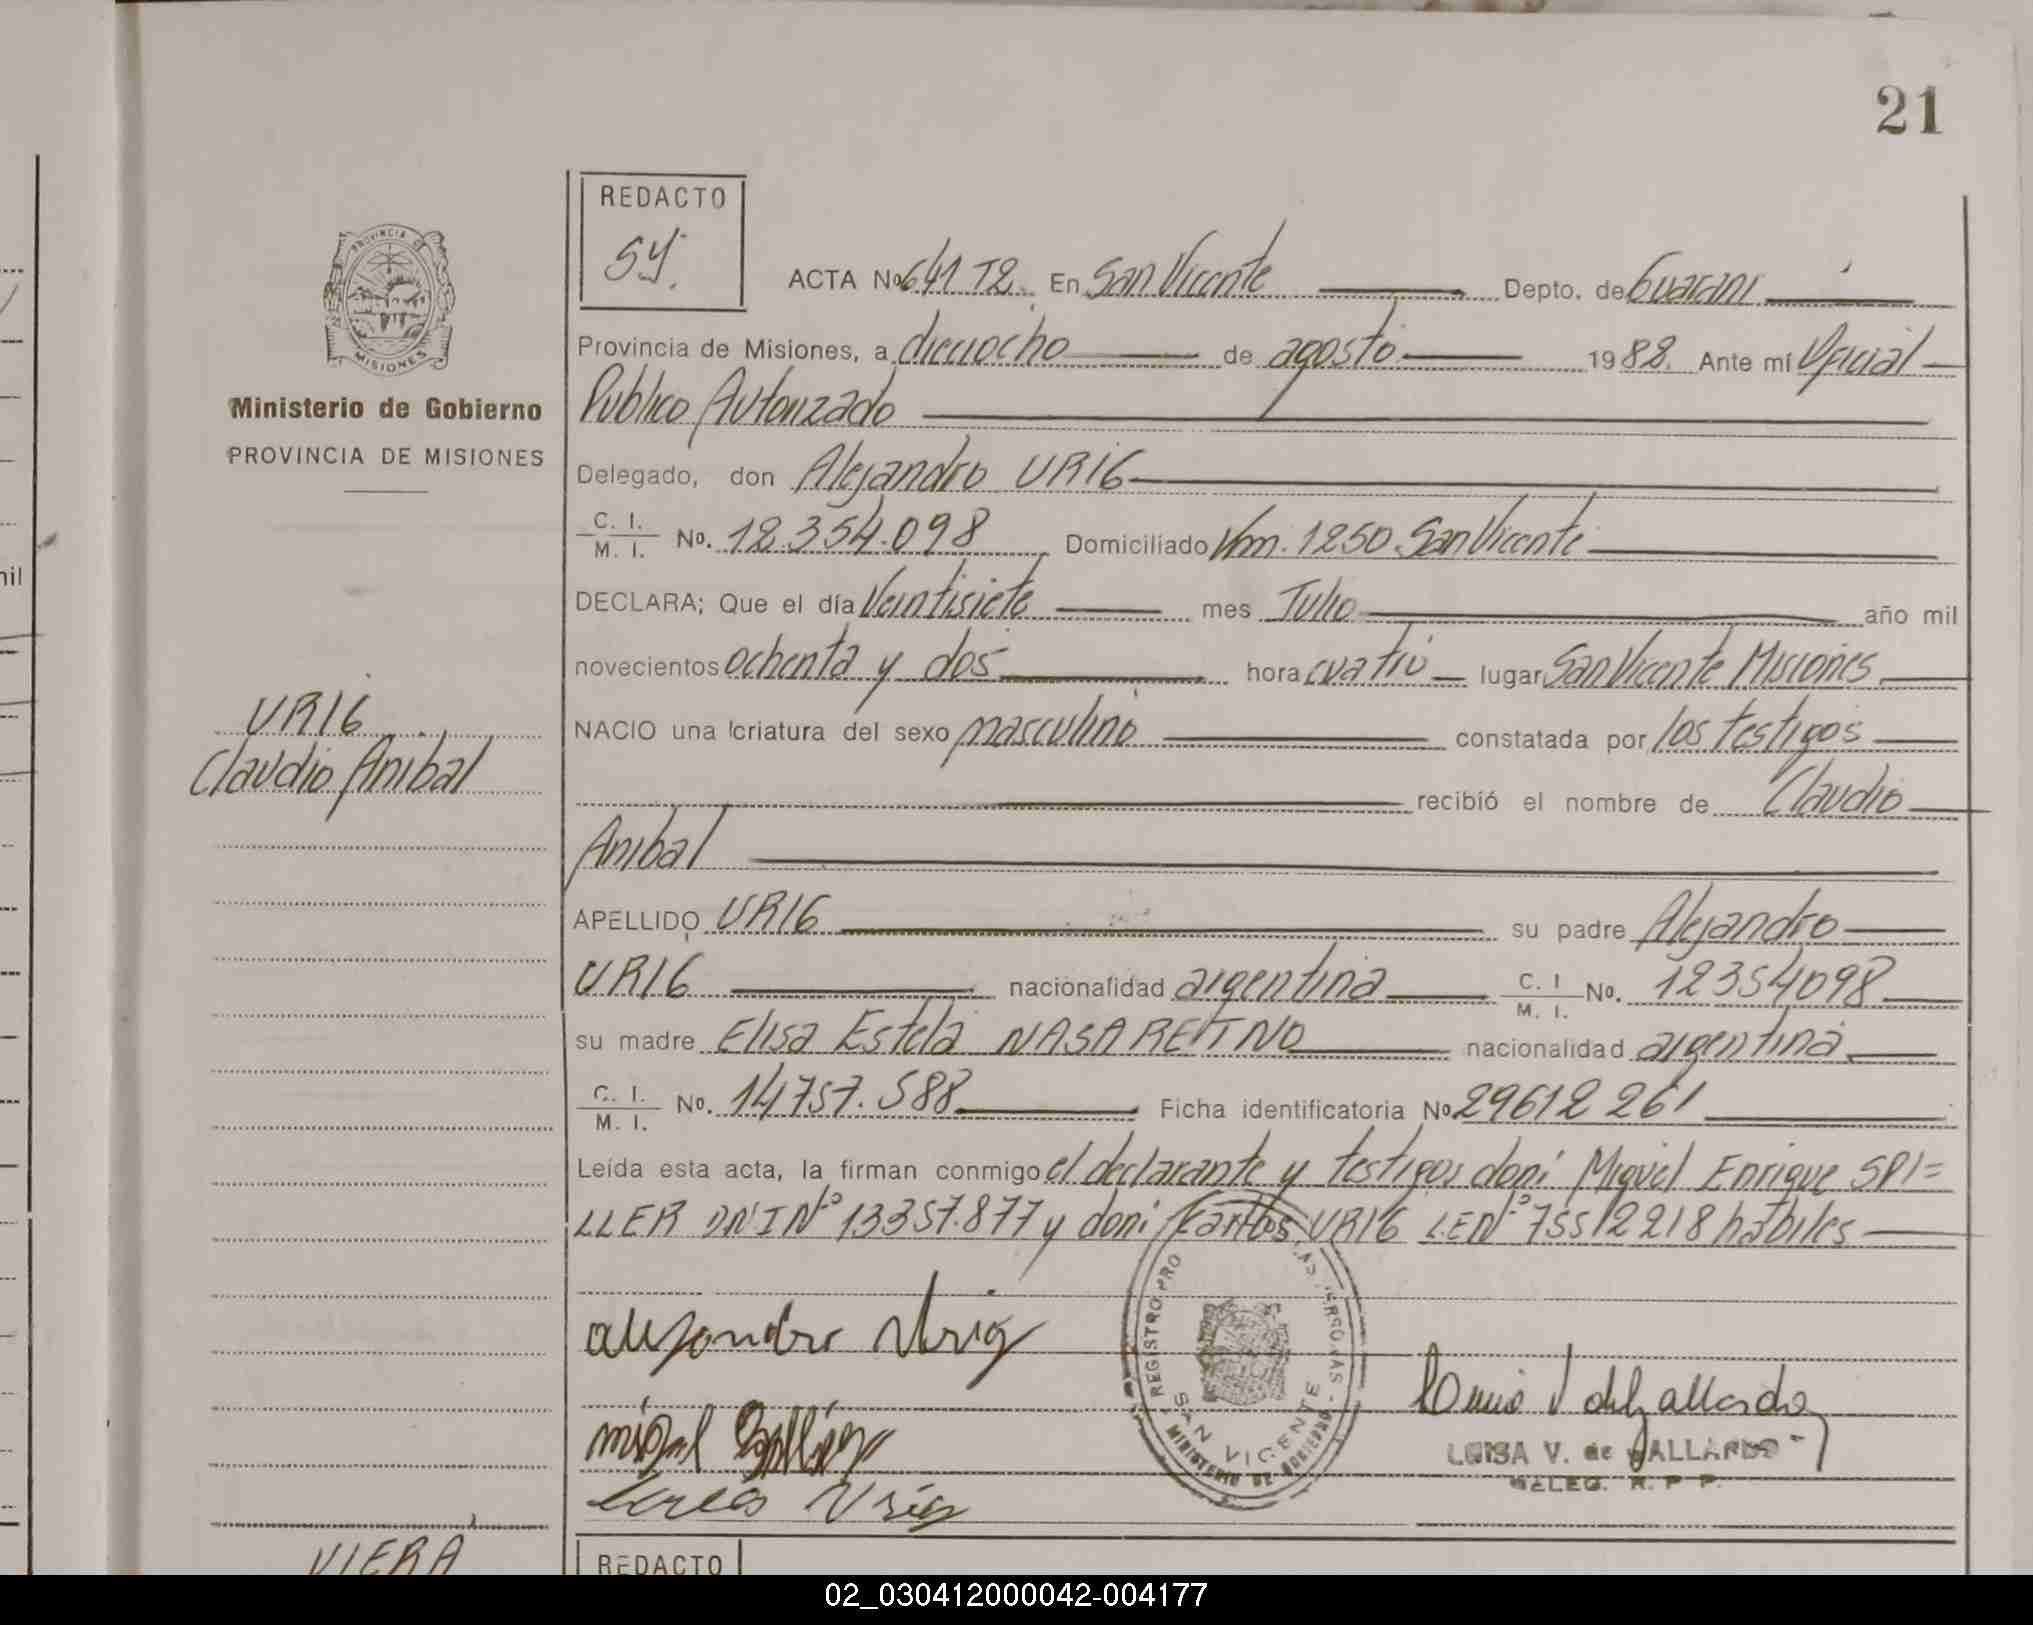 21
REDACTO
SY.
PROVINCIA DE
MISIONES
Ministerio de Gobierno
PROVINCIA DE MISIONES
ACTA No 641 T2. En San Vicente Depto. de Guarani
Provincia de Misiones, a dieciocho de agosto 1988. Ante mí Oficial
Publico Autorizado
Delegado, don Alejandro URIG
C. I. / M. I. No. 12.354.098 Domiciliado Km. 1250. San Vicente
DECLARA; Que el día Veintisiete mes Julio año mil
novecientos ochenta y dos hora cuatro lugar San Vicente Misiones
NACIO una criatura del sexo masculino constatada por los testigos
recibió el nombre de Claudio
Anibal
APELLIDO URIG su padre Alejandro
URIG nacionalidad argentina C. I / M. I. No. 12354098
su madre Elisa Estela NASARETNO nacionalidad argentina
C. I. / M. I. No. 14757.588 Ficha identificatoria No 29612261
Leída esta acta, la firman conmigo el declarante y testigos doni Miguel Enrique SPI=
LLER DNI Nº 13357.877 y doni Carlos URIG L.E Nº 75512218 habiles
URIG
Claudio Anibal
alejandro Urig
REGISTRO PRO
SAN VICENTE
MINISTERIO DE GOBIERNO
Luisa V de Gallardo
LUISA V. de GALLARDO
DELEG. R. P P.
Carlos Urig
VIERA
REDACTO
nil
02_030412000042-004177